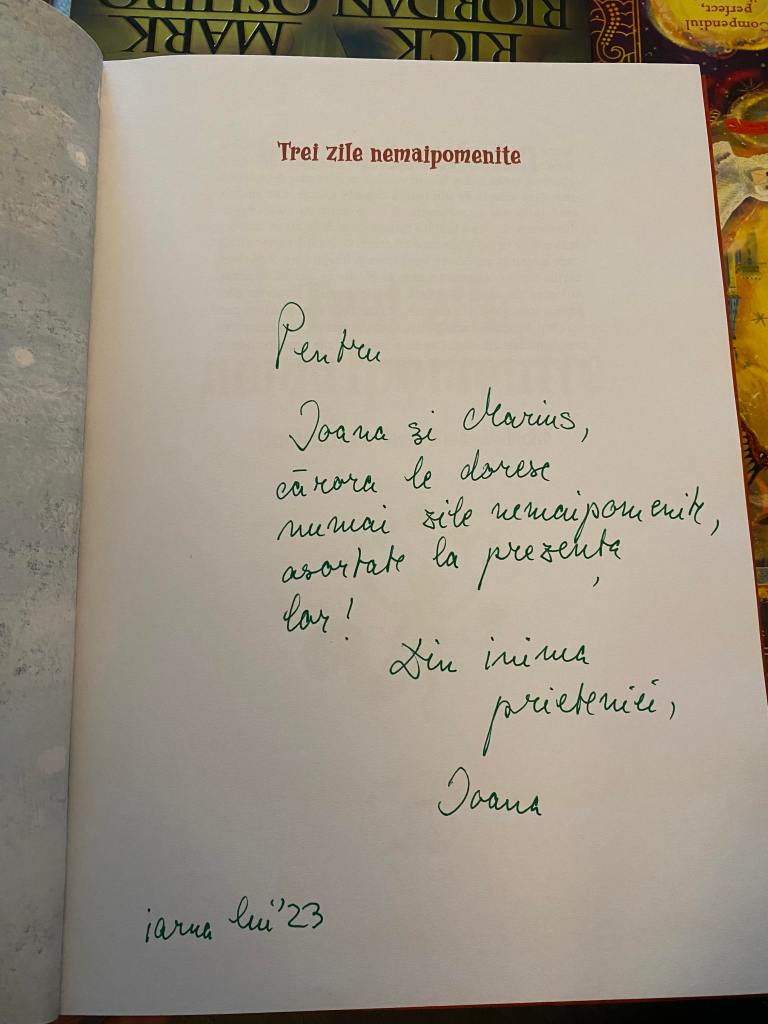 RICK MARK
RIORDAN OSHIRO
Compendiul
perfect,
Trei zile nemaipomenite
Pentru
Ioana și Marius,
cărora le doresc
numai zile nemaipomenite,
asortate la prezența
lor!
Din inima
prieteniei,
Ioana
iarna lui '23